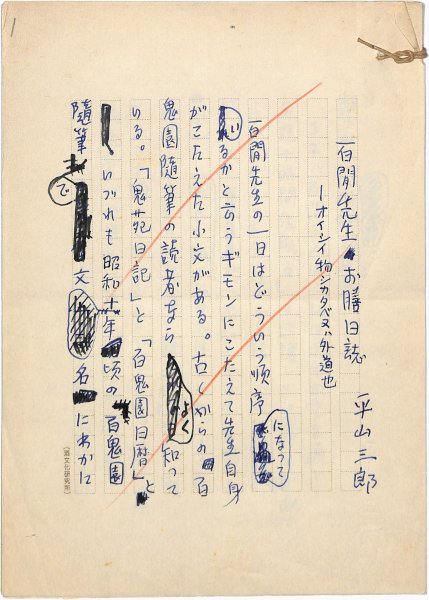 1
百閒先生お膳日誌
ーオイシイ物シカタベヌハ外道也
平山三郎
百閒先生の一日はどういう順序になって
いるかと云うギモンにこたえて先生自身
がこたえた小文がある。古くからの百
鬼園随筆の読者ならよく知って
いる。「鬼苑日記」と「百鬼園日暦」と
いづれも昭和十一年頃の百鬼園
隨筆で文名にわかに
(酒文化研究所)